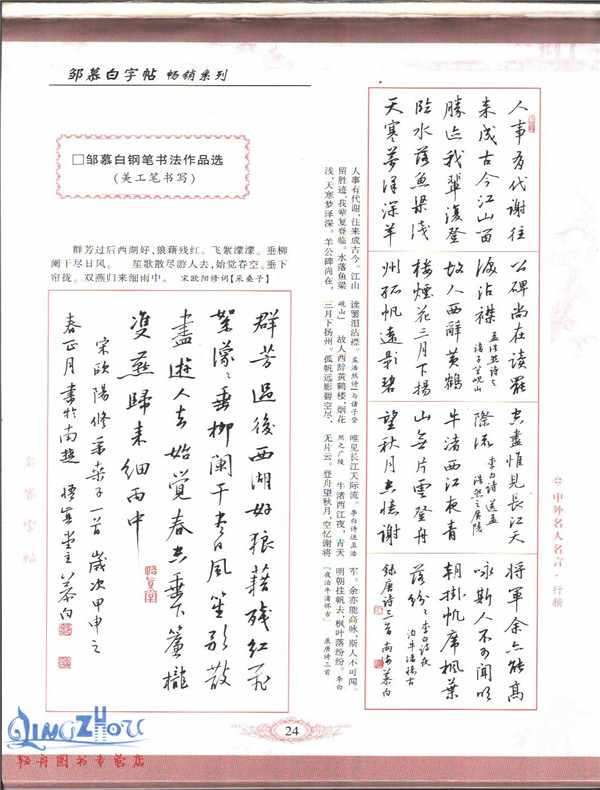 邹慕白字帖 畅销系列
□邹慕白钢笔书法作品选
(美工笔书写)
群芳过后西湖好,狼藉残红。飞絮濛濛。垂柳
阑干尽日风。 笙歌散尽游人去,始觉春空。垂下
帘拢。双燕归来细雨中。 宋欧阳修词【采桑子】
群芳過後西湖好狼藉残红飛
絮濛々垂柳阑干尽日风笙歌散
盡遊人去始觉春空垂下簾櫳
雙燕歸来细雨中
宋欧陽修采桑子一首歲次甲申之
春正月書於南越悟真堂主慕白
人事有代谢,往来成古今。江山
留胜迹,我辈复登临。水落鱼梁
浅,天寒梦泽深。羊公碑尚在,
读罢泪沾襟。孟浩然诗『与诸子登
岘山』 故人西辞黄鹤楼,烟花
三月下扬州。孤帆远影碧空尽,
唯见长江天际流。李白诗送孟浩
然之广陵 牛渚西江夜,青天
无片云。登舟望秋月,空忆谢将
军。余亦能高咏,斯人不可闻。
明朝挂帆去,枫叶落纷纷。李白
『夜泊牛渚怀古』 录唐诗三首
人事有代谢往
来成古今江山留
勝迹我輩復登
临水落鱼梁浅
天寒夢泽深羊
公碑尚在读罢
淚沾襟 孟浩然诗与诸子登岘山
故人西辭黄鹤
楼煙花三月下揚
州孤帆遠影碧
空盡惟见長江天
際流 李白诗送孟浩然之广陵
牛渚西江夜青
山無片雲登舟
望秋月空憶谢
将軍余亦能高
咏斯人不可闻明
朝掛帆席枫葉
落纷々 李白诗夜泊牛渚怀古
録唐诗三首南海慕白
中外名人名言·行楷
名家字帖
24
QINGZHOU
轻舟图书专营店